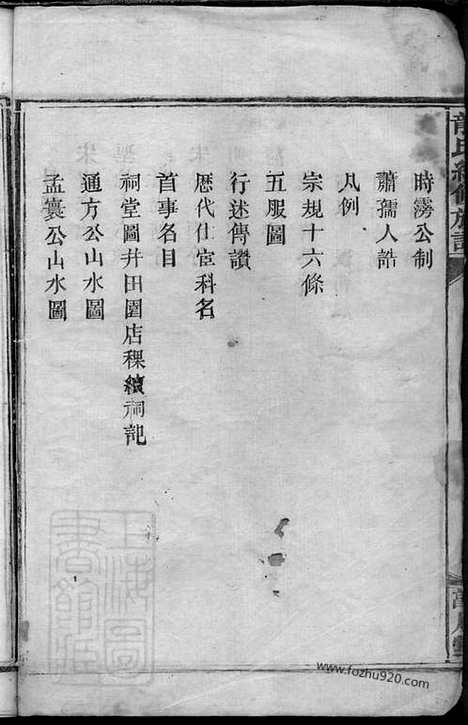 時霶公制
蕭孺人誥
凡例
宗規十六條
五服圖
行述傳讚
歷代仕宦科名
首事名目
祠堂圖幷田園店稞續祠記
通方公山水圖
孟寰公山水圖
上海圖書館藏
www.fozhu920.com